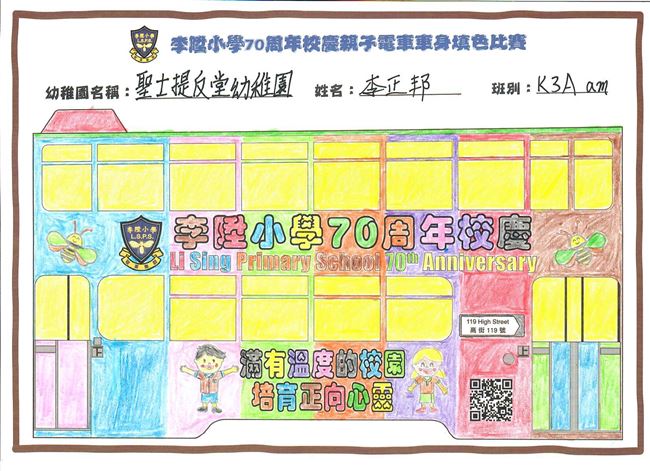 李陞小學70周年校慶親子電車車身填色比賽
幼稚園名稱：聖士提反堂幼稚園 姓名：李正邦 班別：K3A am
李陞小學
L.S.P.S.
李陞小學70周年校慶
Li Sing Primary School 70th Anniversary
119 High Street
高街119號
滿有溫度的校園
培育正向心靈